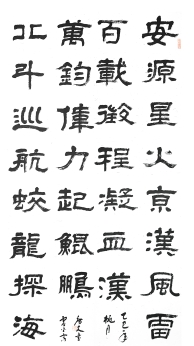 安源星火京漢風雷
百載徵程凝血漢
萬鈞偉力起鯤鵬
北斗巡航蛟龍探海
乙巳年